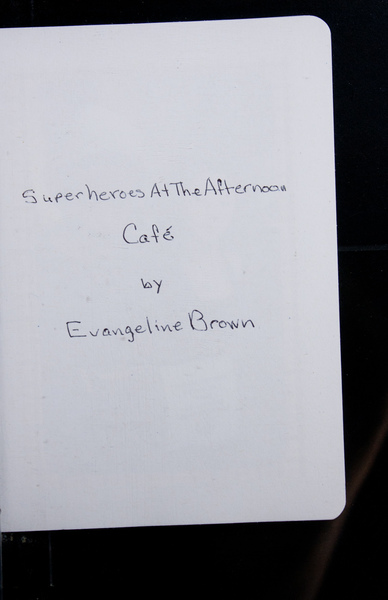 Superheroes At The Afternoon
Café
by
Evangeline Brown